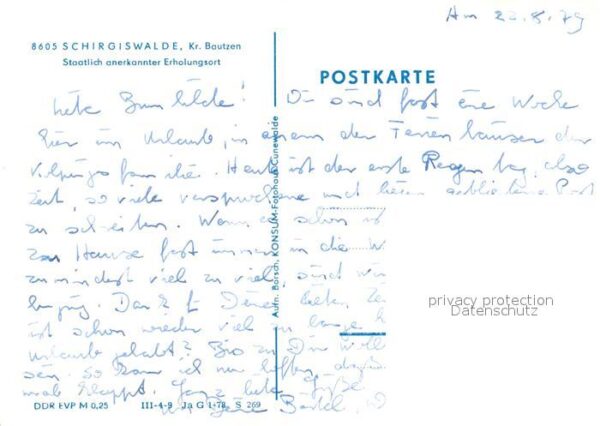 Am 22.8.79
8605 SCHIRGISWALDE, Kr. Bautzen
Staatlich anerkannter Erholungsort
POSTKARTE
Liebe Brunhilde! Wir sind fast eine Woche
hier im Urlaub, in einem der Ferienhäuser der
Kolpingsfamilie. Heut ist der erste Regentag, also
Zeit, so viele versprochene und liegen gebliebene Post
zu schreiben. Wenn es schon ist
zu Hause fast immer in die W
zumindest viel zu viel, sind wir
Dank f. Deinen lieben
ist schon wieder viel zu lange h
Urlaub gehabt? Bis zu Dir woll
sen. So kann ich nur hoffen, daß
mal klappt. Ganz liebe Grüße
Deine Bärbel,
Aufn. Barsch, KONSUM-Fotohaus Cunewalde
privacy protection
Datenschutz
DDR EVP M 0,25 III-4-9 Ja G 1-78 S 269